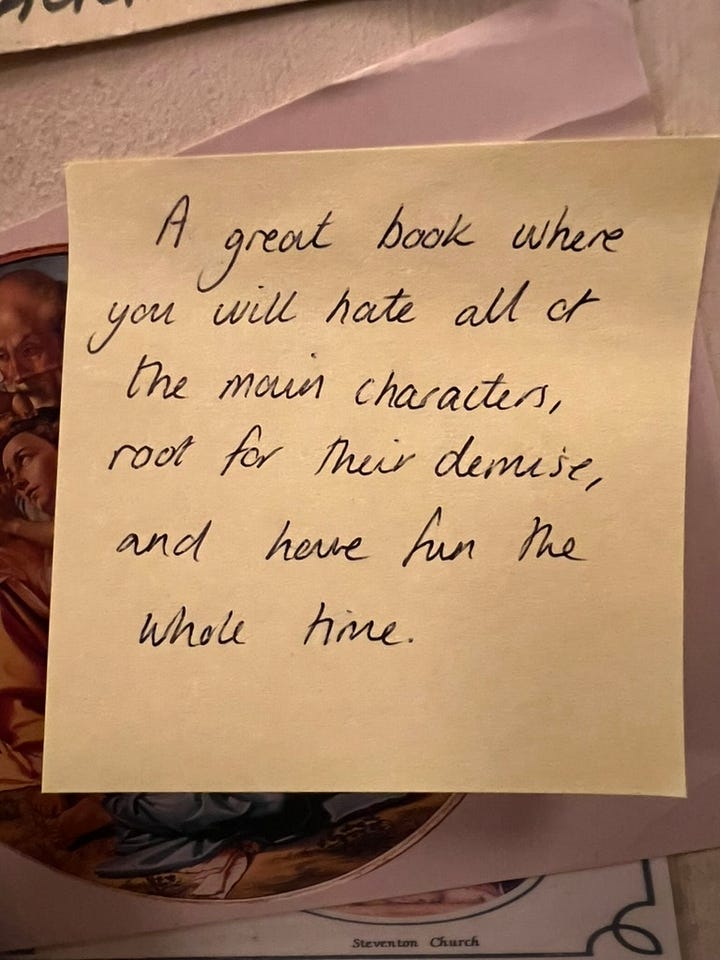 A great book where
you will hate all of
the main characters,
root for their demise,
and have fun the
whole time.
Steventon Church